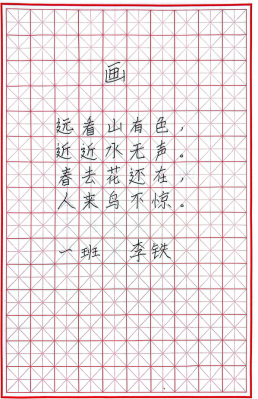 画
远看山有色，
近近水无声。
春去花还在，
人来鸟不惊。
一班 李铁